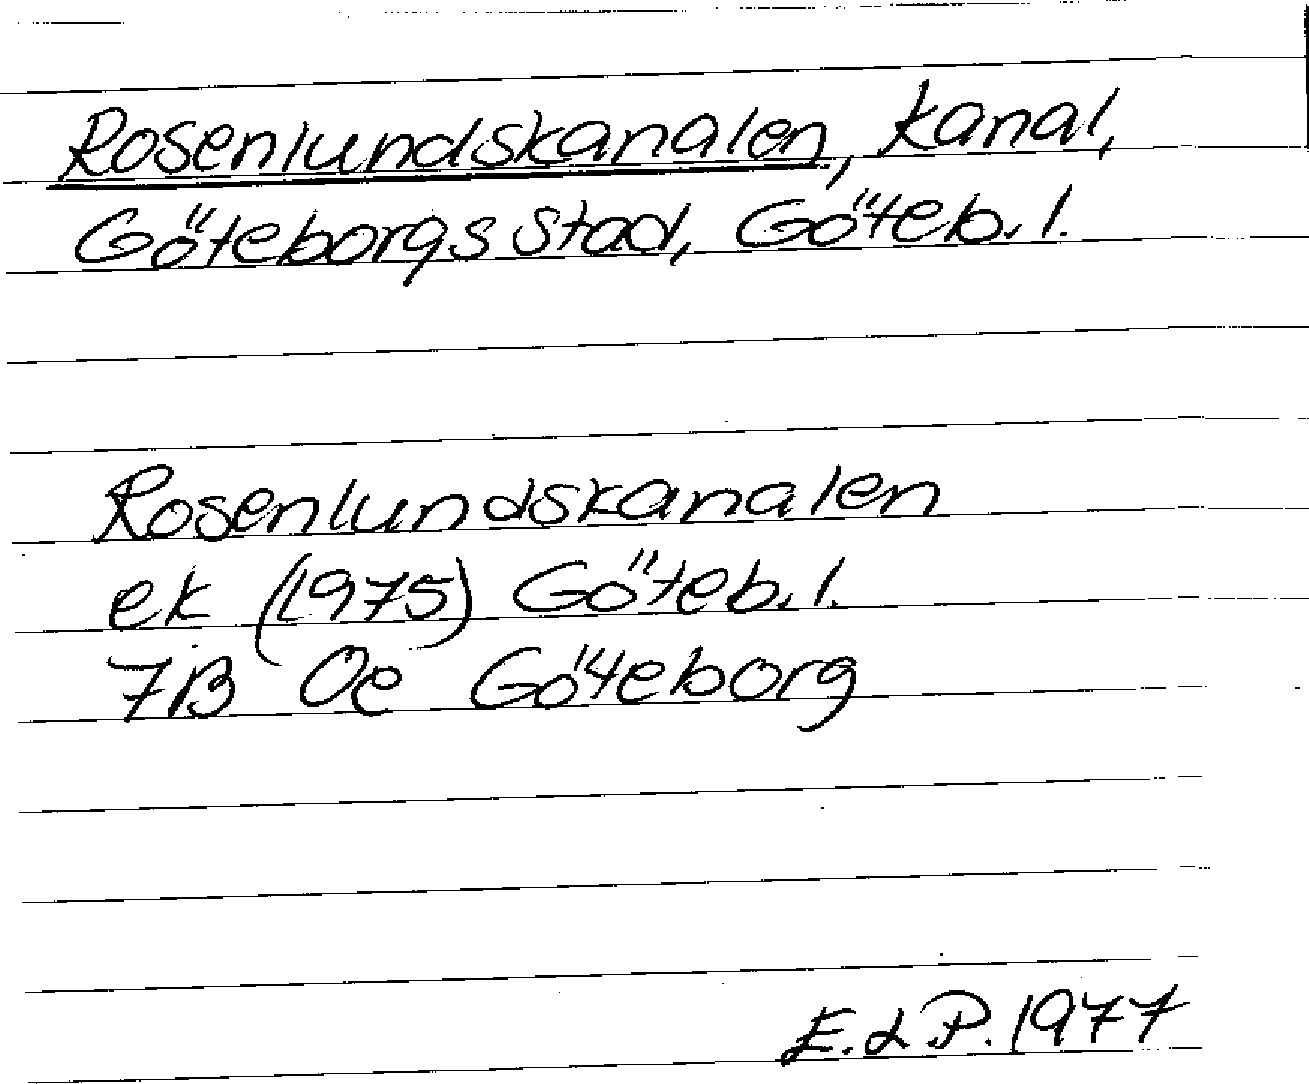 Rosenlundskanalen, kanal,
Göteborgs stad, Göteb. l.
Rosenlundskanalen
ek (1975) Göteb. l.
7B 0e Göteborg
E. d P. 1977